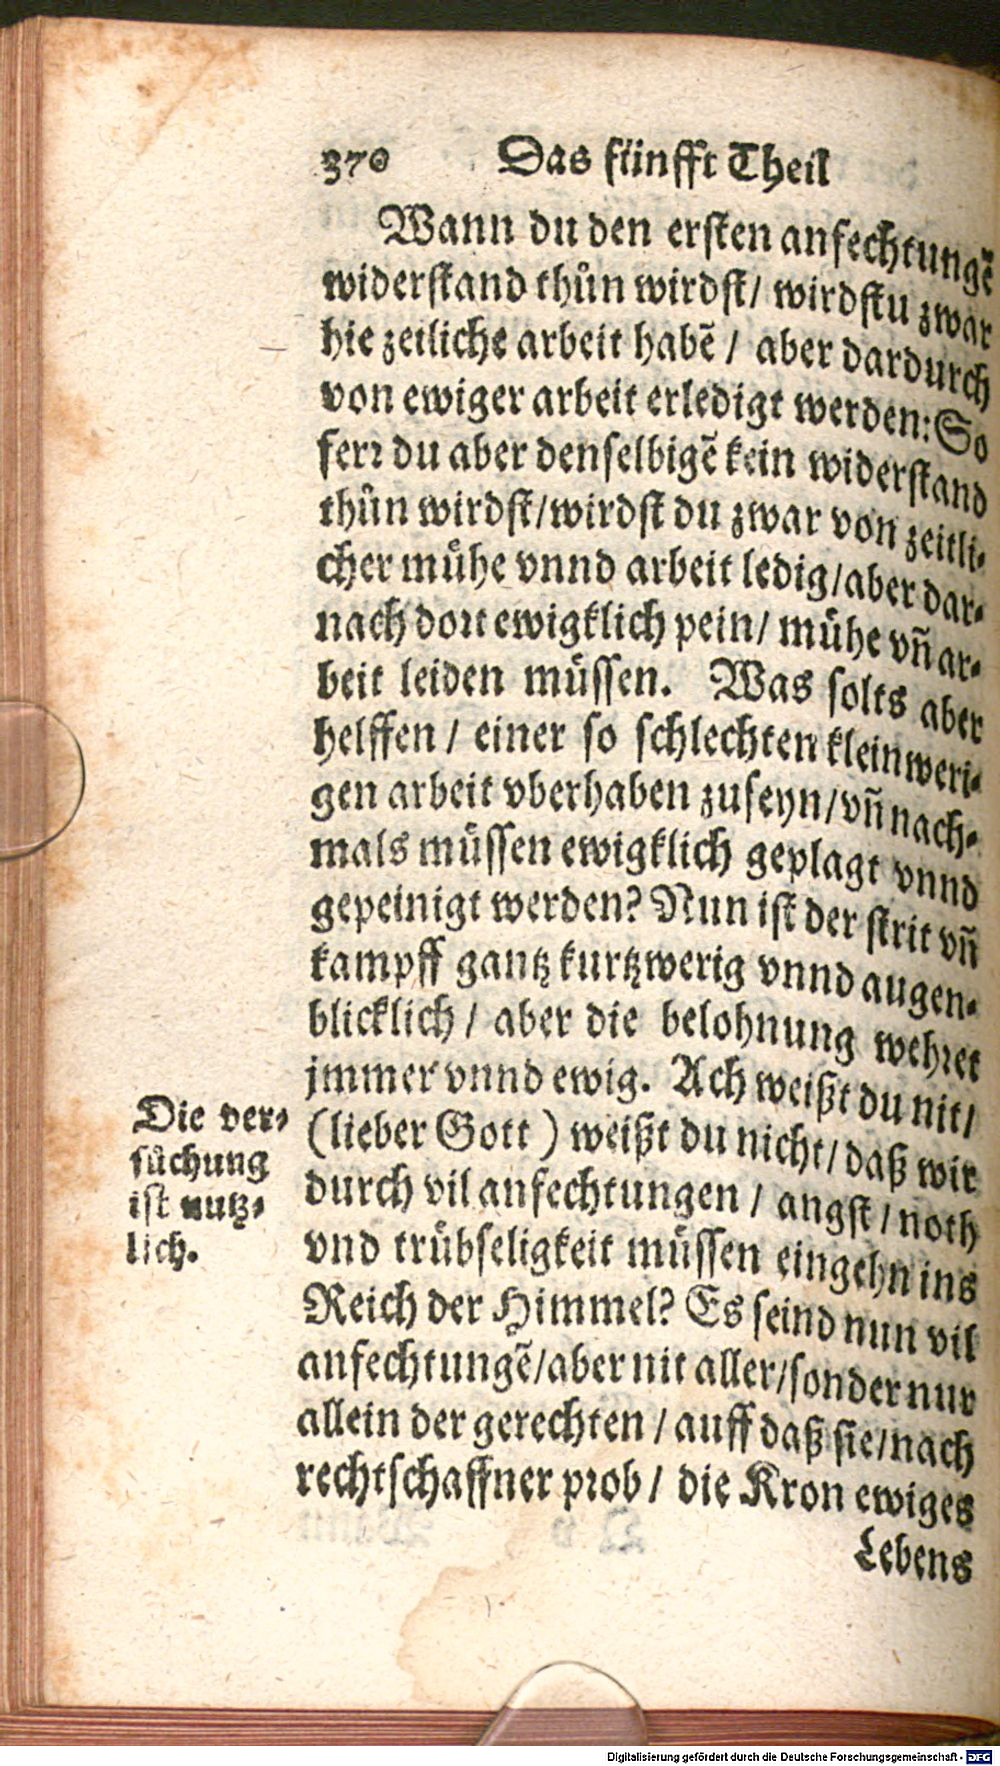 370 Das fünfft Theil
Wann du den ersten anfechtungẽ
widerstand thůn wirdst/ wirdstu zwar
hie zeitliche arbeit habẽ / aber dardurch
von ewiger arbeit erledigt werden: So
ferꝛ du aber denselbigẽ kein widerstand
thůn wirdst/wirdst du zwar von zeitli-
cher mühe vnnd arbeit ledig/aber dar-
nach doꝛt ewigklich pein/ mühe vñ ar-
beit leiden müssen. Was solts aber
helffen / einer so schlechten kleinweri-
gen arbeit vberhaben zuseyn/vñ nach-
mals müssen ewigklich geplagt vnnd
gepeinigt werden? Nun ist der strit vñ
kampff gantz kurtzwerig vnnd augen-
blicklich / aber die belohnung wehꝛet
jmmer vnnd ewig. Ach weißt du nit/
(lieber Gott) weißt du nicht/daß wir
durch vil anfechtungen / angst/noth
vnd trübseligkeit müssen eingehn ins
Reich der Himmel? Es seind nun vil
anfechtungẽ/aber nit aller/sonder nur
allein der gerechten / auff daß sie/nach
rechtschaffner pꝛob / die Kron ewiges
Lebens
Die ver-
sůchung
ist nutz-
lich.
Digitalisierung gefördert durch die Deutsche Forschungsgemeinschaft - DFG